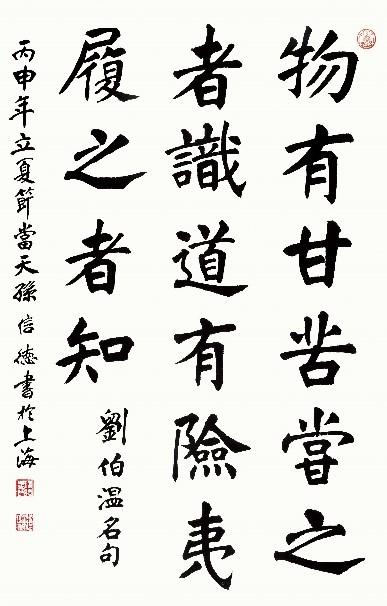 物有甘苦嘗之
者識道有險夷
履之者知
劉伯溫名句
丙申年立夏節當天孫信德書於上海